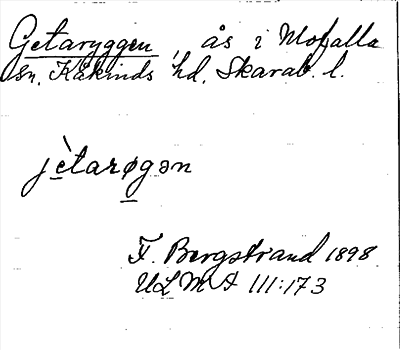 Getaryggen, ås i Mofalla
sn, Kåkinds hd, Skarab. l.
jètarøgən
F. Bergstrand 1898
ULMA 111:173